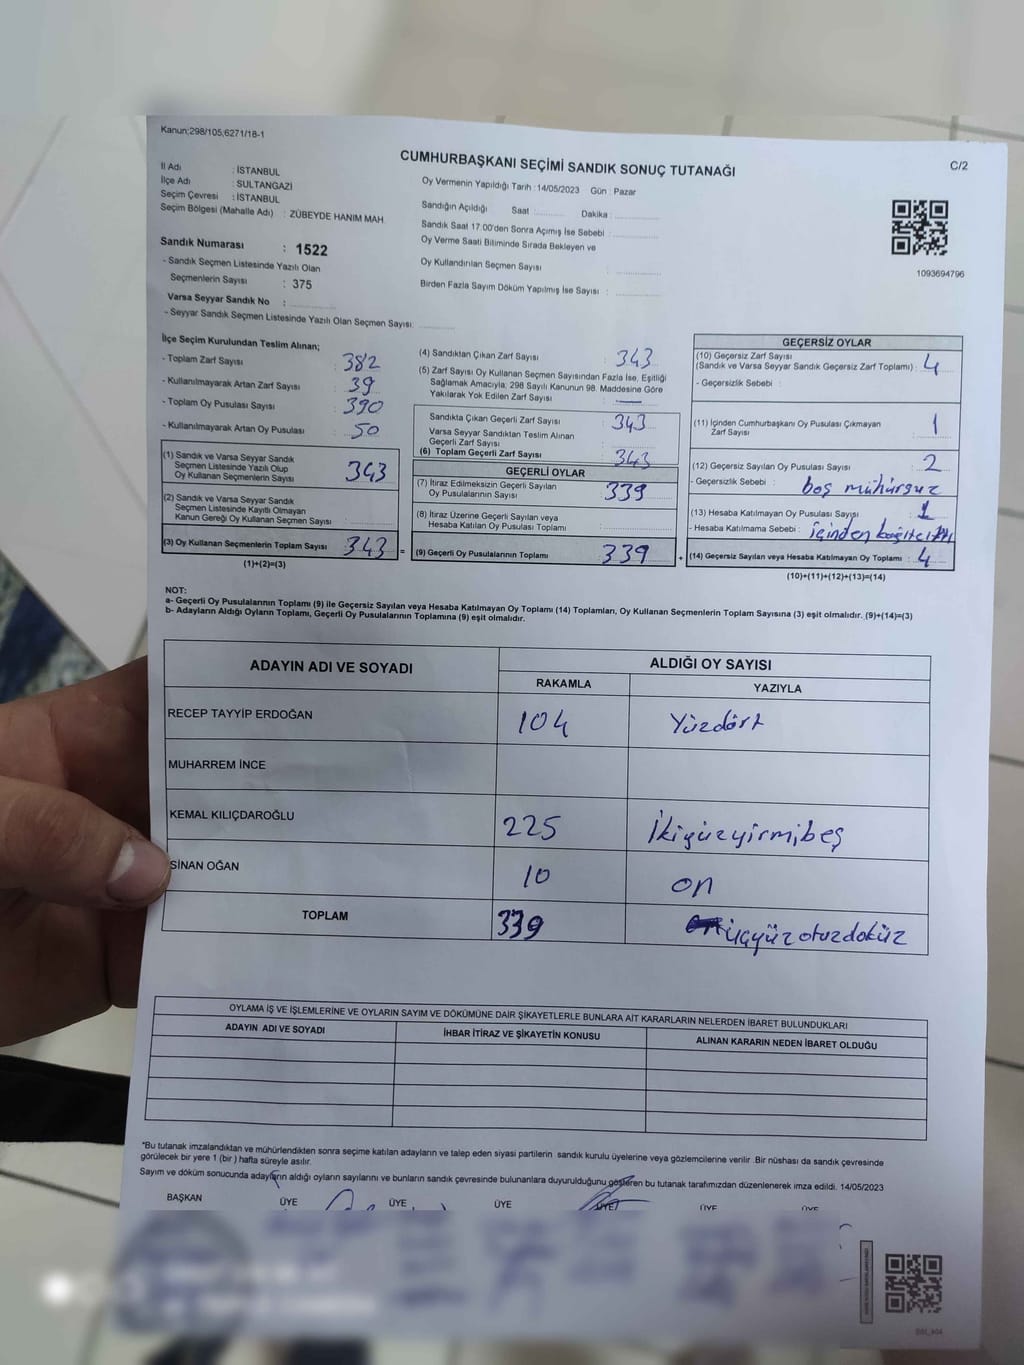 Kanun;298/105,6271/18-1
CUMHURBAŞKANI SEÇİMİ SANDIK SONUÇ TUTANAĞI
C/2
İl Adı : İSTANBUL
İlçe Adı : SULTANGAZİ
Seçim Çevresi : İSTANBUL
Seçim Bölgesi (Mahalle Adı) : ZÜBEYDE HANIM MAH.
Sandık Numarası : 1522
- Sandık Seçmen Listesinde Yazılı Olan
Seçmenlerin Sayısı : 375
Varsa Seyyar Sandık No :
- Seyyar Sandık Seçmen Listesinde Yazılı Olan Seçmen Sayısı:
Oy Vermenin Yapıldığı Tarih :14/05/2023 Gün : Pazar
Sandığın Açıldığı Saat : Dakika :
Sandık Saat 17.00'den Sonra Açımış İse Sebebi :
Oy Verme Saati Bitiminde Sırada Bekleyen ve
Oy Kullandırılan Seçmen Sayısı :
Birden Fazla Sayım Döküm Yapılmış İse Sayısı :
1093694796
İlçe Seçim Kurulundan Teslim Alınan;
- Toplam Zarf Sayısı 382
- Kullanılmayarak Artan Zarf Sayısı 39
- Toplam Oy Pusulası Sayısı 390
- Kullanılmayarak Artan Oy Pusulası 50
(1) Sandık ve Varsa Seyyar Sandık
Seçmen Listesinde Yazılı Olup
Oy Kullanan Seçmenlerin Sayısı 343
(2) Sandık ve Varsa Seyyar Sandık
Seçmen Listesinde Kayıtlı Olmayan
Kanun Gereği Oy Kullanan Seçmen Sayısı
(3) Oy Kullanan Seçmenlerin Toplam Sayısı 343 =
(1)+(2)=(3)
(4) Sandıktan Çıkan Zarf Sayısı 343
(5) Zarf Sayısı Oy Kullanan Seçmen Sayısından Fazla İse, Eşitliği
Sağlamak Amacıyla, 298 Sayılı Kanunun 98. Maddesine Göre
Yakılarak Yok Edilen Zarf Sayısı : —
Sandıkta Çıkan Geçerli Zarf Sayısı 343
Varsa Seyyar Sandıktan Teslim Alınan
Geçerli Zarf Sayısı
(6) Toplam Geçerli Zarf Sayısı 343
GEÇERLİ OYLAR
(7) İtiraz Edilmeksizin Geçerli Sayılan
Oy Pusulalarının Sayısı 339
(8) İtiraz Üzerine Geçerli Sayılan veya
Hesaba Katılan Oy Pusulası Toplamı
(9) Geçerli Oy Pusulalarının Toplamı 339 +
GEÇERSİZ OYLAR
(10) Geçersiz Zarf Sayısı
(Sandık ve Varsa Seyyar Sandık Geçersiz Zarf Toplamı) : 4
- Geçersizlik Sebebi :
(11) İçinden Cumhurbaşkanı Oy Pusulası Çıkmayan
Zarf Sayısı : 1
(12) Geçersiz Sayılan Oy Pusulası Sayısı : 2
- Geçersizlik Sebebi : boş mühürsüz
(13) Hesaba Katılmayan Oy Pusulası Sayısı : 1
- Hesaba Katılmama Sebebi : içinden
(14) Geçersiz Sayılan veya Hesaba Katılmayan Oy Toplamı : 4
(10)+(11)+(12)+(13)=(14)
NOT:
a- Geçerli Oy Pusulalarının Toplamı (9) ile Geçersiz Sayılan veya Hesaba Katılmayan Oy Toplamı (14) Toplamları, Oy Kullanan Seçmenlerin Toplam Sayısına (3) eşit olmalıdır. (9)+(14)=(3)
b- Adayların Aldığı Oyların Toplamı, Geçerli Oy Pusulalarının Toplamına (9) eşit olmalıdır.
ADAYIN ADI VE SOYADI
ALDIĞI OY SAYISI
RAKAMLA YAZIYLA
RECEP TAYYİP ERDOĞAN 104 Yüzdört
MUHARREM İNCE
KEMAL KILIÇDAROĞLU 225 İkiyüzyirmibeş
SİNAN OĞAN 10 on
TOPLAM 339 üçyüzotuzdokuz
OYLAMA İŞ VE İŞLEMLERİNE VE OYLARIN SAYIM VE DÖKÜMÜNE DAİR ŞİKAYETLERLE BUNLARA AİT KARARLARIN NELERDEN İBARET BULUNDUKLARI
ADAYIN ADI VE SOYADI İHBAR İTİRAZ VE ŞİKAYETİN KONUSU ALINAN KARARIN NEDEN İBARET OLDUĞU
*Bu tutanak imzalandıktan ve mühürlendikten sonra seçime katılan adayların ve talep eden siyasi partilerin sandık kurulu üyelerine veya gözlemcilerine verilir .Bir nüshası da sandık çevresinde
görülecek bir yere 1 (bir ) hafta süreyle asılır.
Sayım ve döküm sonucunda adayların aldığı oyların sayılarını ve bunların sandık çevresinde bulunanlara duyurulduğunu gösteren bu tutanak tarafımızdan düzenlenerek imza edildi. 14/05/2023
BAŞKAN ÜYE ÜYE ÜYE ÜYE ÜYE ÜYE